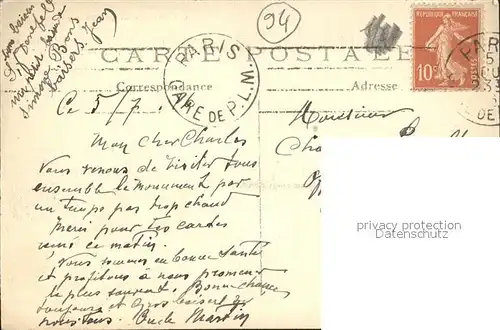 un baiser
Simone Bons
baisers Jean
94
CARTE POSTALE
Correspondance
Adresse
PARIS
GARE DE P.L.M
RÉPUBLIQUE FRANÇAISE
10c
POSTES
PARIS
Ce 5/7.
Mon cher Charles
Vous venons de visiter tous
ensemble le monument par
un temps pas trop chaud
Merci pour tes cartes
ce matin.
Vous sommes en bonne santé
et profitons à nous promener
le plus souvent. Bonne chance
toujours et gros baisers de
nous tous. Oncle Martin
Monsieur
privacy protection
Datenschutz